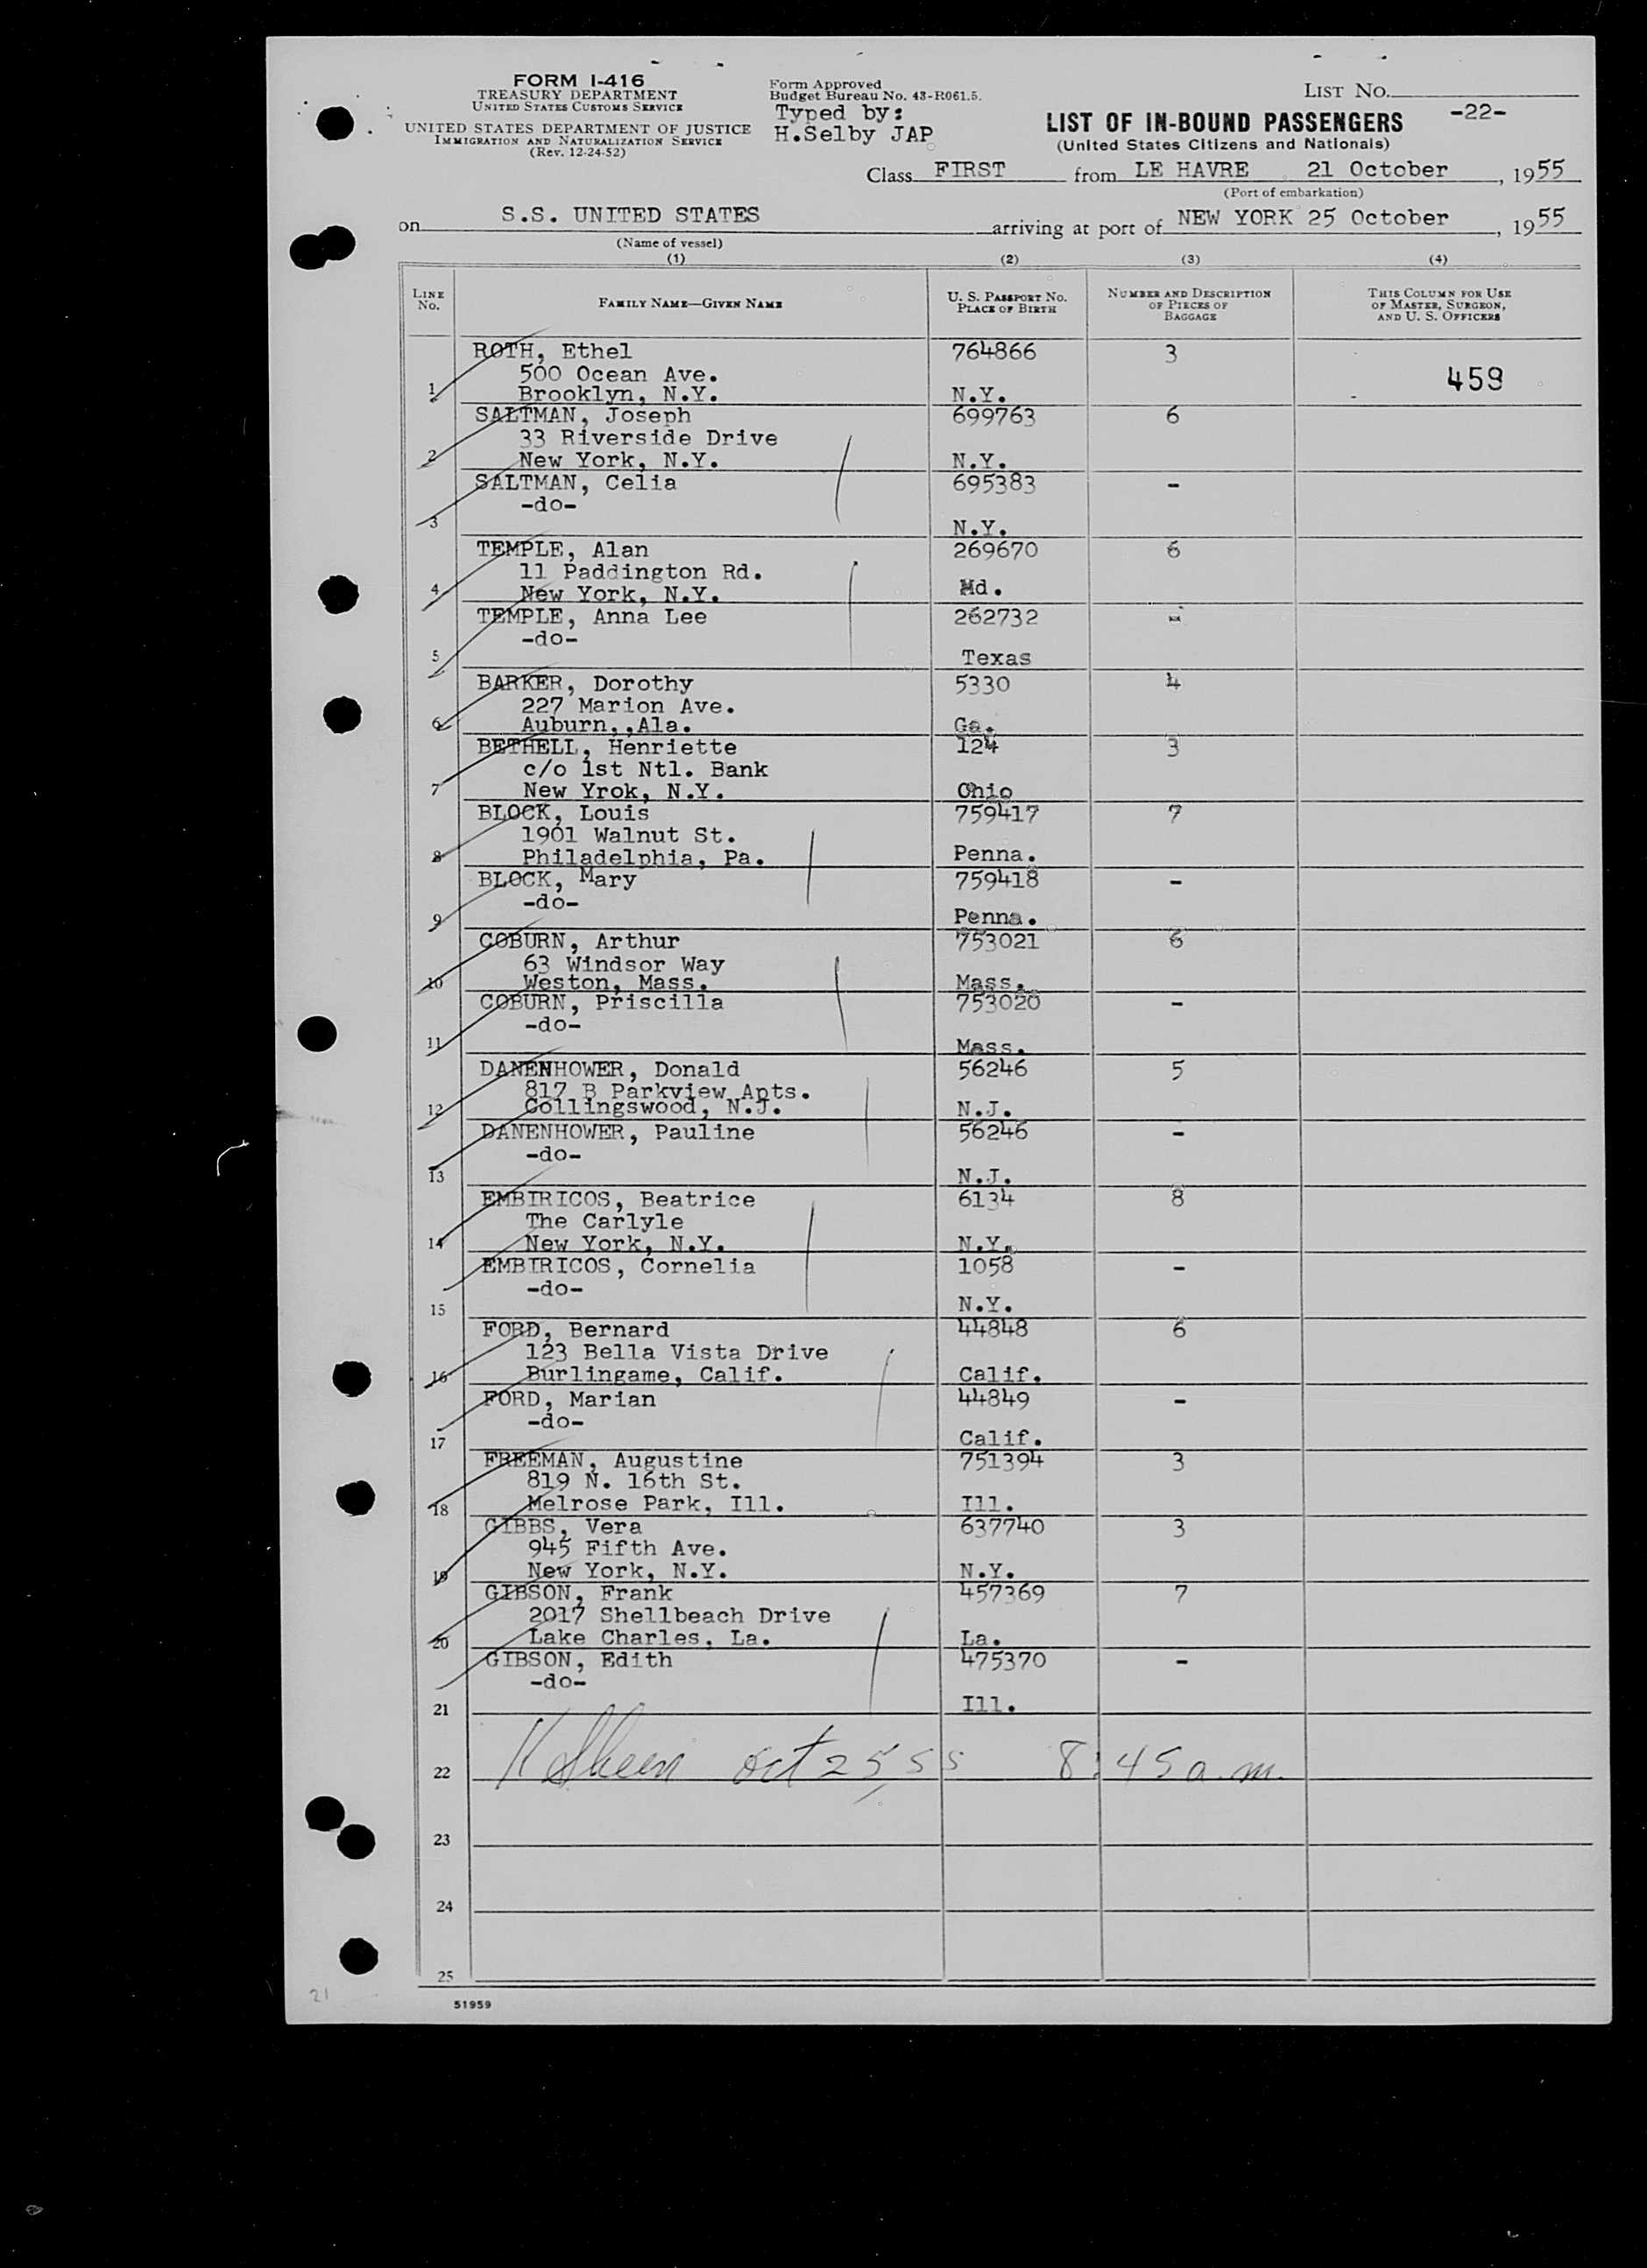 FORM I-416
TREASURY DEPARTMENT
UNITED STATES CUSTOMS SERVICE
UNITED STATES DEPARTMENT OF JUSTICE
IMMIGRATION AND NATURALIZATION SERVICE
(Rev. 12-24-52)
Form Approved
Budget Bureau No. 43-R061.5.
Typed by:
H.Selby JAP
LIST NO.
-22-
LIST OF IN-BOUND PASSENGERS
(United States Citizens and Nationals)
Class FIRST from LE HAVRE 21 October, 1955
(Port of embarkation)
on S.S. UNITED STATES arriving at port of NEW YORK 25 October, 1955
(Name of vessel)
(1) (2) (3) (4)
LINE NO. FAMILY NAME—GIVEN NAME U. S. PASSPORT NO. PLACE OF BIRTH NUMBER AND DESCRIPTION OF PIECES OF BAGGAGE THIS COLUMN FOR USE OF MASTER, SURGEON, AND U. S. OFFICERS
ROTH, Ethel 764866 3
500 Ocean Ave. 459
1 Brooklyn, N.Y. N.Y.
SALTMAN, Joseph 699763 6
33 Riverside Drive
2 New York, N.Y. N.Y.
SALTMAN, Celia 695383 -
-do-
3 N.Y.
TEMPLE, Alan 269670 6
11 Paddington Rd.
4 New York, N.Y. Md.
TEMPLE, Anna Lee 262732 -
-do-
5 Texas
BARKER, Dorothy 5330 4
227 Marion Ave.
6 Auburn,,Ala. Ga.
BETHELL, Henriette 124 3
c/o 1st Ntl. Bank
7 New Yrok, N.Y. Ohio
BLOCK, Louis 759417 7
1901 Walnut St.
8 Philadelphia, Pa. Penna.
BLOCK, Mary 759418 -
-do-
9 Penna.
COBURN, Arthur 753021 6
63 Windsor Way
10 Weston, Mass. Mass.
COBURN, Priscilla 753020 -
-do-
11 Mass.
DANENHOWER, Donald 56246 5
817 B Parkview Apts.
12 Collingswood, N.J. N.J.
DANENHOWER, Pauline 56246 -
-do-
13 N.J.
EMBIRICOS, Beatrice 6134 8
The Carlyle
14 New York, N.Y. N.Y.
EMBIRICOS, Cornelia 1058 -
-do-
15 N.Y.
FORD, Bernard 44848 6
123 Bella Vista Drive
16 Burlingame, Calif. Calif.
FORD, Marian 44849 -
-do-
17 Calif.
FREEMAN, Augustine 751394 3
819 N. 16th St.
18 Melrose Park, Ill. Ill.
GIBBS, Vera 637740 3
945 Fifth Ave.
19 New York, N.Y. N.Y.
GIBSON, Frank 457369 7
2017 Shellbeach Drive
20 Lake Charles, La. La.
GIBSON, Edith 475370 -
-do-
21 Ill.
22 Oct 25, 55 8:45 a.m.
23
24
25
51959
21